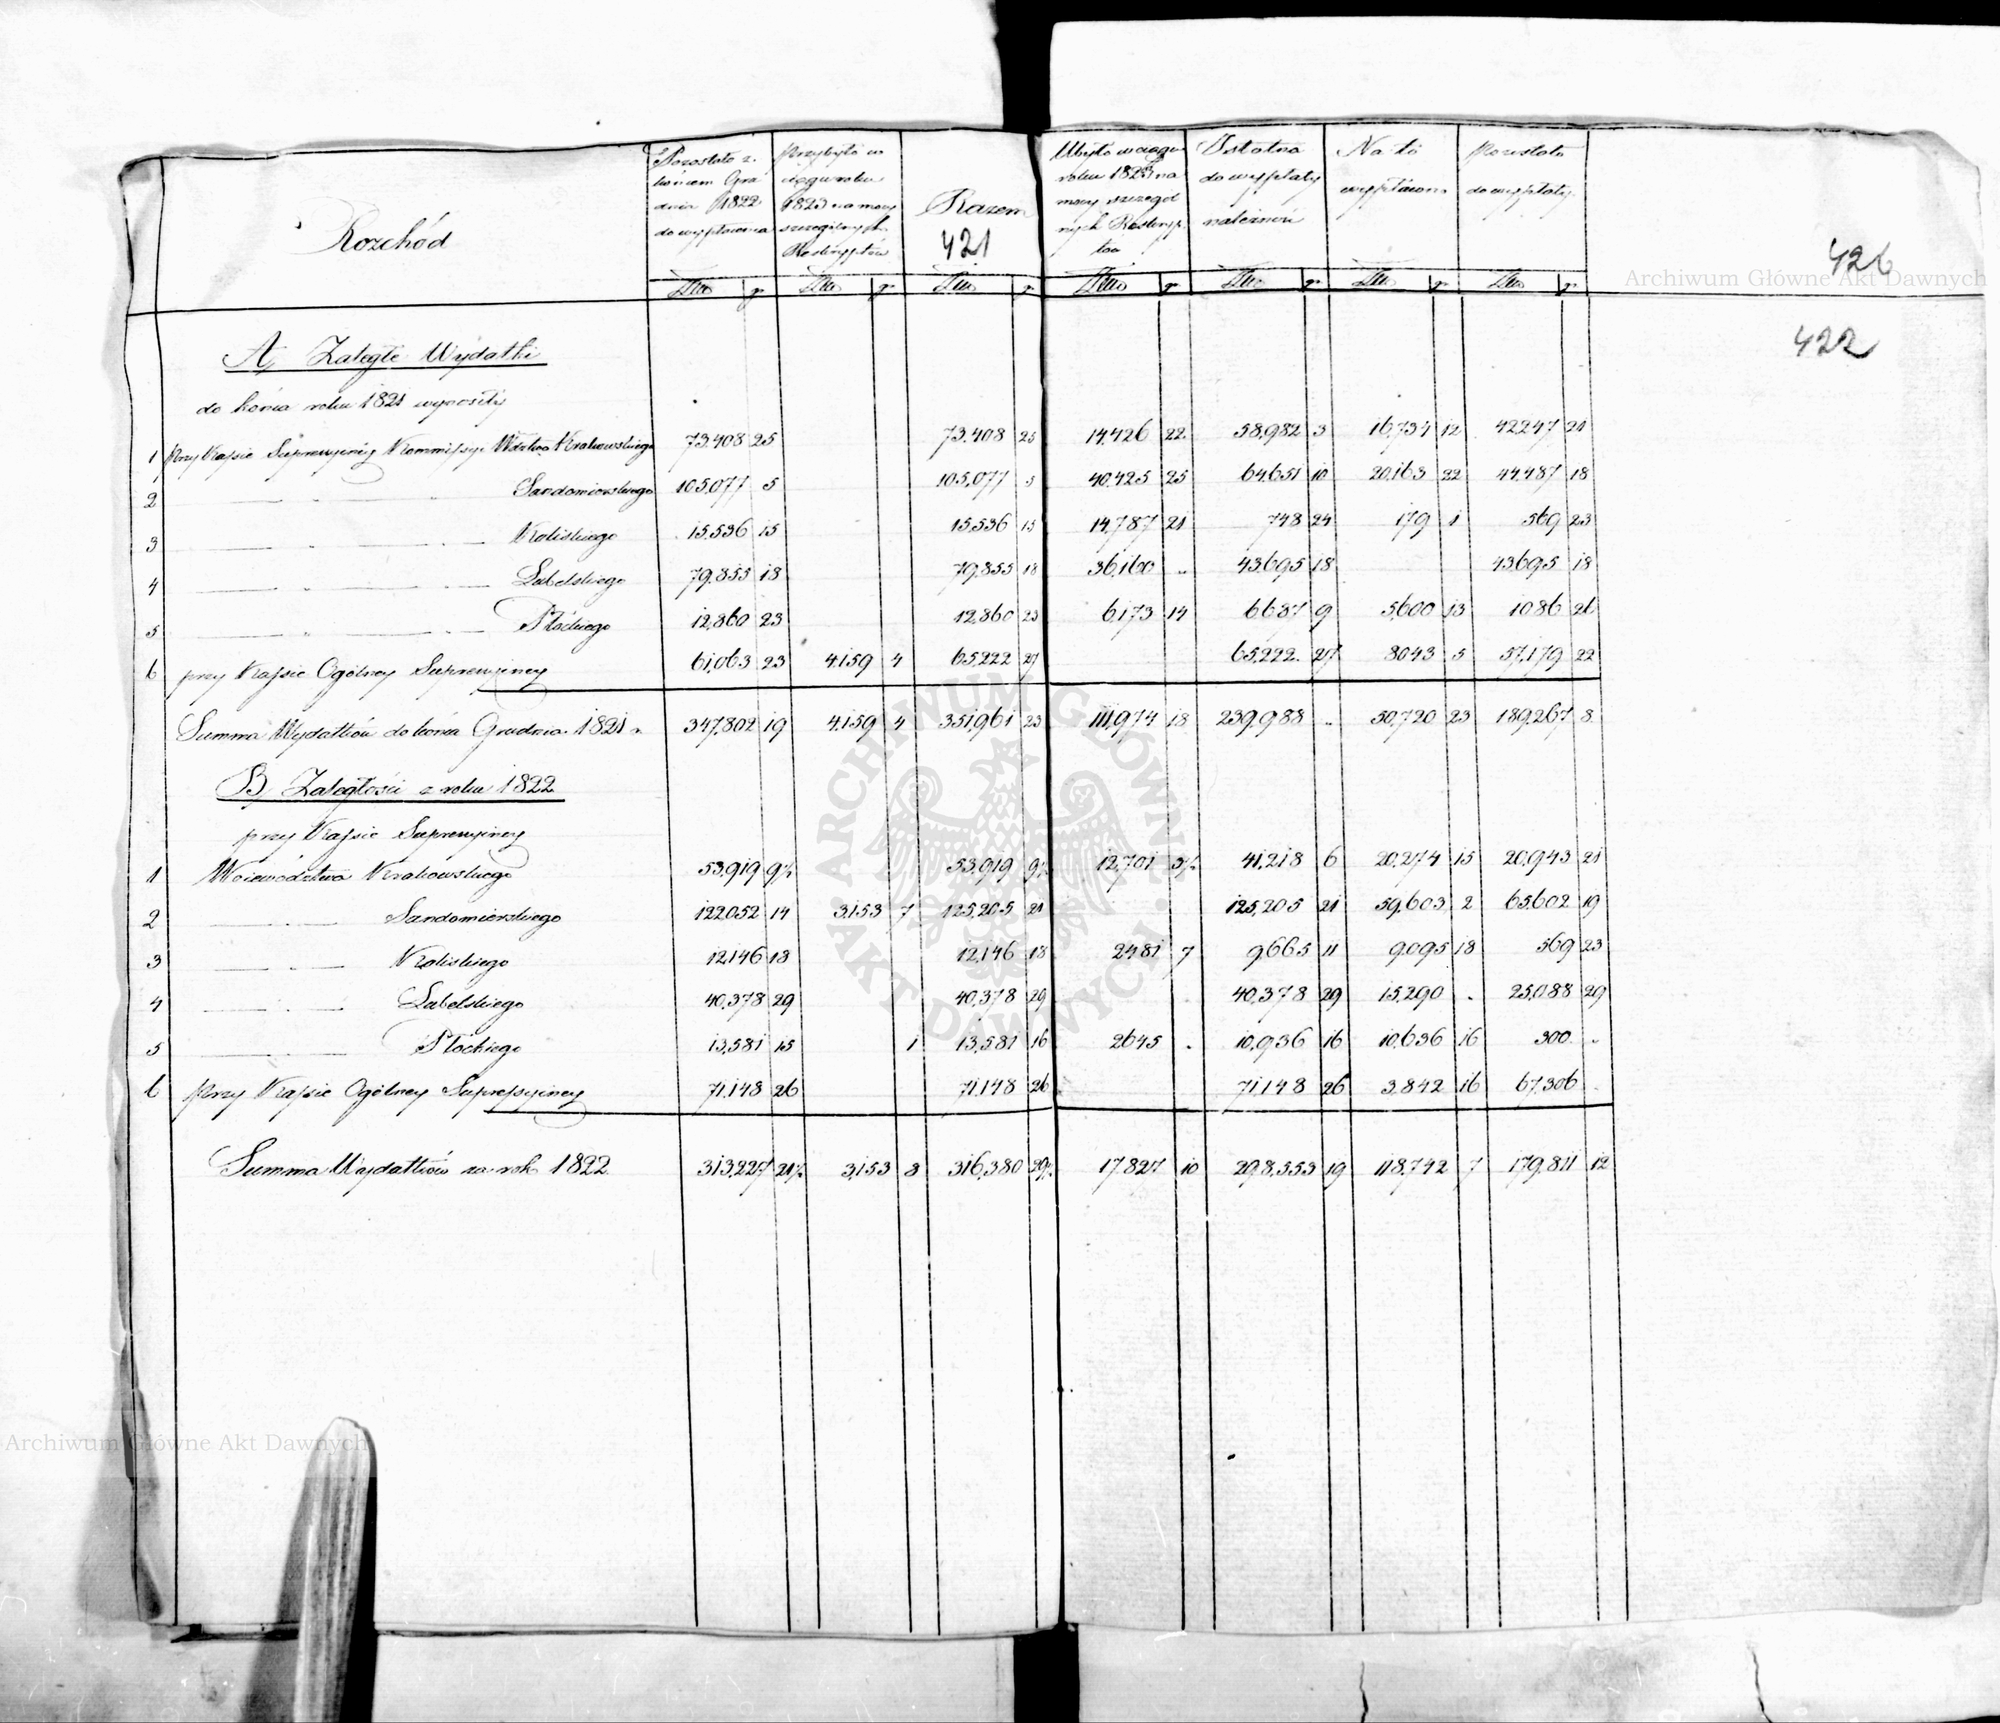 Rozchód
Pozostało z
końcem Gru
dnia 1822
do wypłacenia
Przybyło w
ciągu roku
1823 na mocy
szczególnych
Reskryptów
Razem
421
Ubyło w ciągu
roku 1823 na
mocy szczegól
nych Reskryp
tów
Ostatnia
do wypłaty
należność
Na to
wypłacono
Pozostało
do wypłaty
426
Archiwum Główne Akt Dawnych
422
Złto gr Złto gr Złto gr Złto gr Złto gr Złto gr Złto gr
A, Zaległe Wydatki
do końca roku 1821 wynosiły
1 przy Kassie Supressyinéy Kommissyi Wdztwa Krakowskiego 73.408 25 73.408 25 14.426 22 58,982 3 16,734 12 42247 21
2 Sandomierskiego 105,077 5 105,077 5 40,425 25 64,651 10 20,163 22 44,487 18
3 Kaliskiego 15.536 15 15.536 15 14,787 21 748 24 179 1 569 23
4 Lubelskiego 79.855 18 79.855 18 36,160 .. 43,695 18 43695 18
5 Płockiego 12,860 23 12,860 23 6,173 14 6687 9 5,600 13 1086 26
6 przy Kassie Ogólney Supressyiney 61,063 23 4.159 4 65,222 27 65,222 27 8043 5 57,179 22
Summa Wydatków do końca Grudnia 1821 r. 347,802 19 4,159 4 351,961 23 111,974 18 239,988 .. 50,720 23 189,267 8
B, Zaległości z roku 1822
przy Kassie Supressyiney
1 Woiewództwa Krakowskiego 53,919 9½ 53,919 9½ 12,701 3½ 41,218 6 20,274 15 20,943 21
2 Sandomierskiego 122052 14 3,153 7 125,205 21 125,205 21 59,603 2 65,602 19
3 Kaliskiego 12,146 18 12,146 18 2481 7 9,665 11 9,095 18 569 23
4 Lubelskiego 40,378 29 40,378 29 40,378 29 15,290 . 25,088 29
5 Płockiego 13,581 15 1 13,581 16 2645 . 10,936 16 10,636 16 300 ..
6 przy Kassie Ogólney Supressyiney 71,148 26 71,148 26 71,148 26 3,842 16 67,306 .
Summa Wydatków za rok 1822 313,227 21½ 3,153 8 316,380 29½ 17,827 10 298,553 19 118,742 7 179,811 12
ARCHIWUM GŁÓWNE AKT DAWNYCH
Archiwum Główne Akt Dawnych